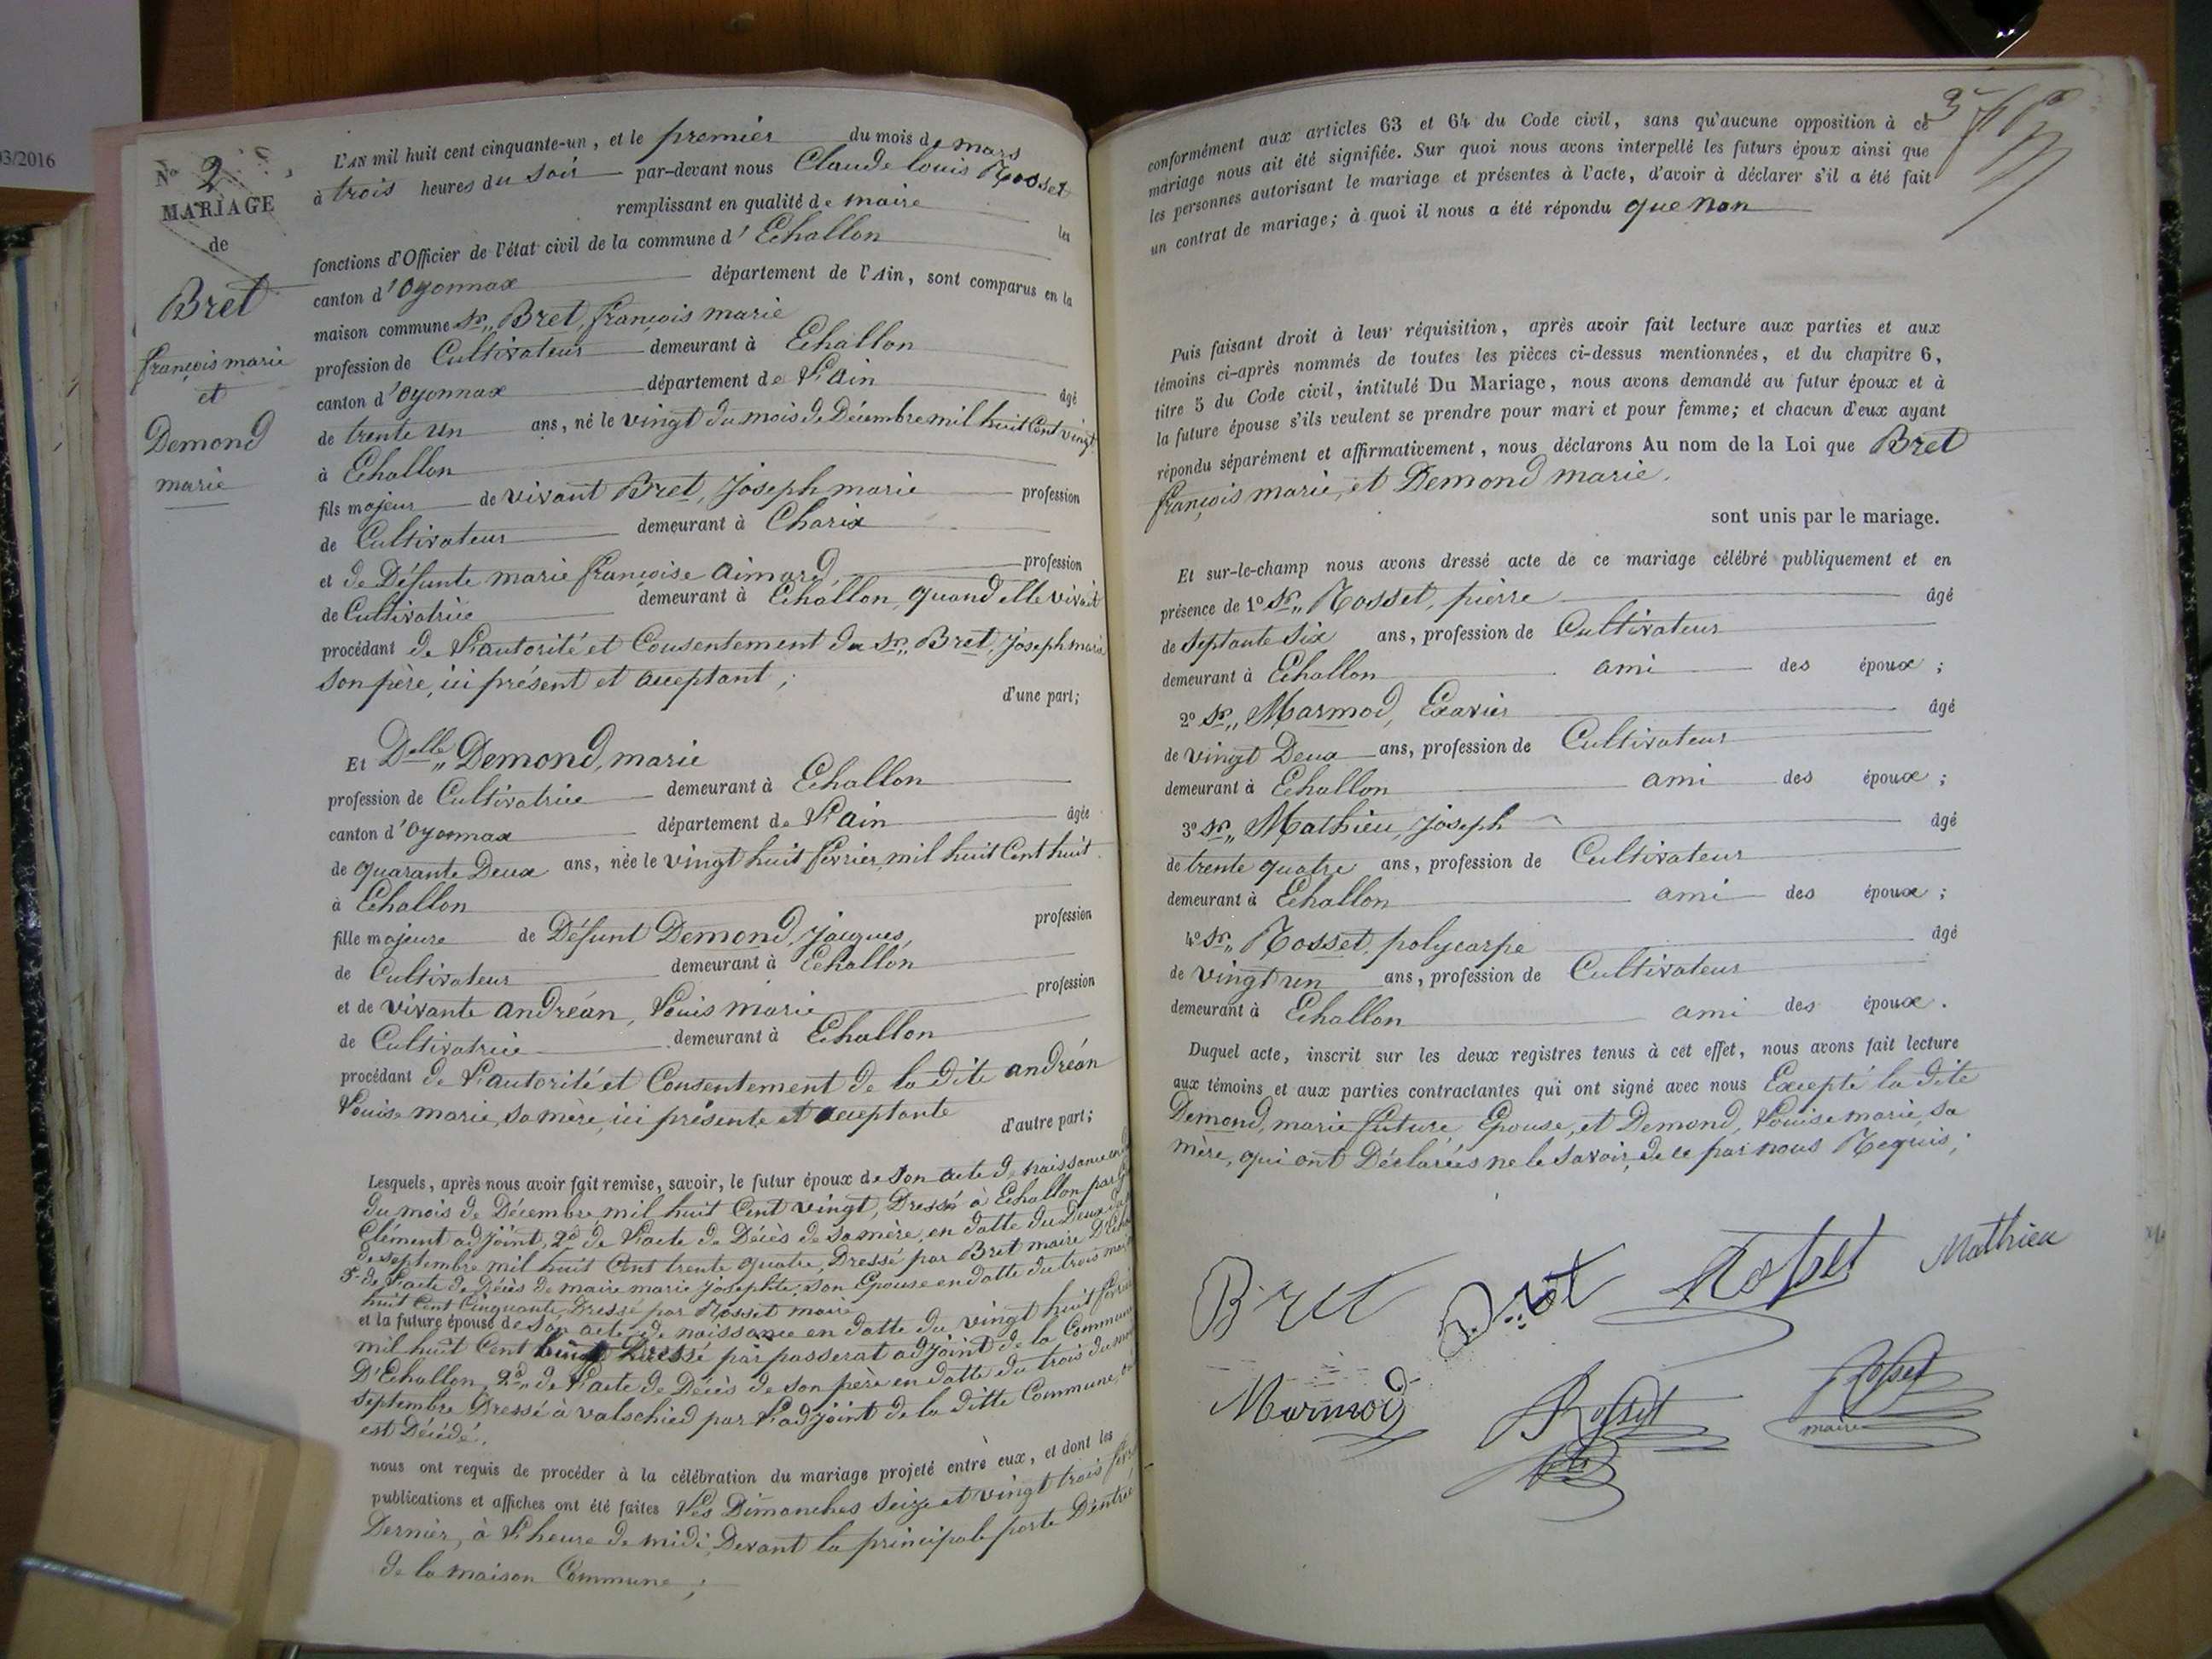 03/2016
N° 2
MARIAGE
de
Bret
françois marie
et
Demond
marie
L'AN mil huit cent cinquante-un, et le premier du mois de mars
à trois heures du soir par-devant nous Claude louis Rosset
remplissant en qualité de maire les
fonctions d'Officier de l'état civil de la commune d'Echallon
canton d'Oyonnax département de l'Ain, sont comparus en la
maison commune Sr. Bret, françois marie
profession de Cultivateur demeurant à Echallon
canton d'Oyonnax département de L'ain âgé
de trente un ans, né le vingt du mois de Décembre mil huit Cent vingt
à Echallon
fils majeur de vivant Bret, Joseph marie profession
de Cultivateur demeurant à Charix
et de Défunte marie françoise aimard profession
de Cultivatrice demeurant à Echallon, quand elle vivait
procédant de L'autorité et Consentement du Sr. Bret, Joseph marie
son père, ici présent et acceptant; d'une part;
Et Delle Demond, marie
profession de Cultivatrice demeurant à Echallon
canton d'Oyonnax département de L'ain âgée
de quarante Deux ans, née le vingt huit février, mil huit Cent huit
à Echallon
fille majeure de Défunt Demond, Jacques, profession
de Cultivateur demeurant à Echallon
et de vivante andréan, Louis marie profession
de Cultivatrice demeurant à Echallon
procédant de L'autorité et Consentement de la dite andréan
Louise marie, sa mère, ici présente et acceptante d'autre part;
Lesquels, après nous avoir fait remise, savoir, le futur époux de son acte de naissance en
du mois de Décembre, mil huit Cent vingt, Dressé à Echallon par
Clément adjoint, 2° de L'acte de Décès de sa mère, en datte du Deux
de septembre mil huit Cent trente quatre, Dressé par Bret maire
3° de L'acte de Décès de maire marie Josephte, son Epouse en datte du trois
huit Cent Cinquante, Dressé par Rosset maire
et la future épouse de son acte de naissance en datte du vingt huit février
mil huit Cent Dressé par passerat adjoint de la Commune
D'Echallon, 2° de L'acte de Décès de son père en datte du trois du
septembre Dressé à valschied par L'adjoint de la ditte Commune,
est Décédé.
nous ont requis de procéder à la célébration du mariage projeté entre eux, et dont les
publications et affiches ont été faites Les Dimanches seize et vingt trois
Dernier, à L'heure de midi, Devant la principale porte D'entrée
de la maison Commune;
conformément aux articles 63 et 64 du Code civil, sans qu'aucune opposition à ce
mariage nous ait été signifiée. Sur quoi nous avons interpellé les futurs époux ainsi que
les personnes autorisant le mariage et présentes à l'acte, d'avoir à déclarer s'il a été fait
un contrat de mariage; à quoi il nous a été répondu que non
Puis faisant droit à leur réquisition, après avoir fait lecture aux parties et aux
témoins ci-après nommés de toutes les pièces ci-dessus mentionnées, et du chapitre 6,
titre 5 du Code civil, intitulé Du Mariage, nous avons demandé au futur époux et à
la future épouse s'ils veulent se prendre pour mari et pour femme; et chacun d'eux ayant
répondu séparément et affirmativement, nous déclarons Au nom de la Loi que Bret
françois marie, et Demond marie.
sont unis par le mariage.
Et sur-le-champ nous avons dressé acte de ce mariage célébré publiquement et en
présence de 1° Sr. Rosset, pierre âgé
de septante six ans, profession de Cultivateur
demeurant à Echallon ami des époux;
2° Sr. Marmod, Exavier âgé
de vingt Deux ans, profession de Cultivateur
demeurant à Echallon ami des époux;
3° Sr. Mathieu, Joseph âgé
de trente quatre ans, profession de Cultivateur
demeurant à Echallon ami des époux;
4° Sr. Rosset, polycarpe âgé
de vingt un ans, profession de Cultivateur
demeurant à Echallon ami des époux.
Duquel acte, inscrit sur les deux registres tenus à cet effet, nous avons fait lecture
aux témoins et aux parties contractantes qui ont signé avec nous Excepté la dite
Demond, marie future Epouse, et Demond, Louise marie, sa
mère, qui ont Déclarées ne le savoir, de ce par nous Requis;
Bret Bret Rosset Mathieu
Marmod Rosset Rosset
maire